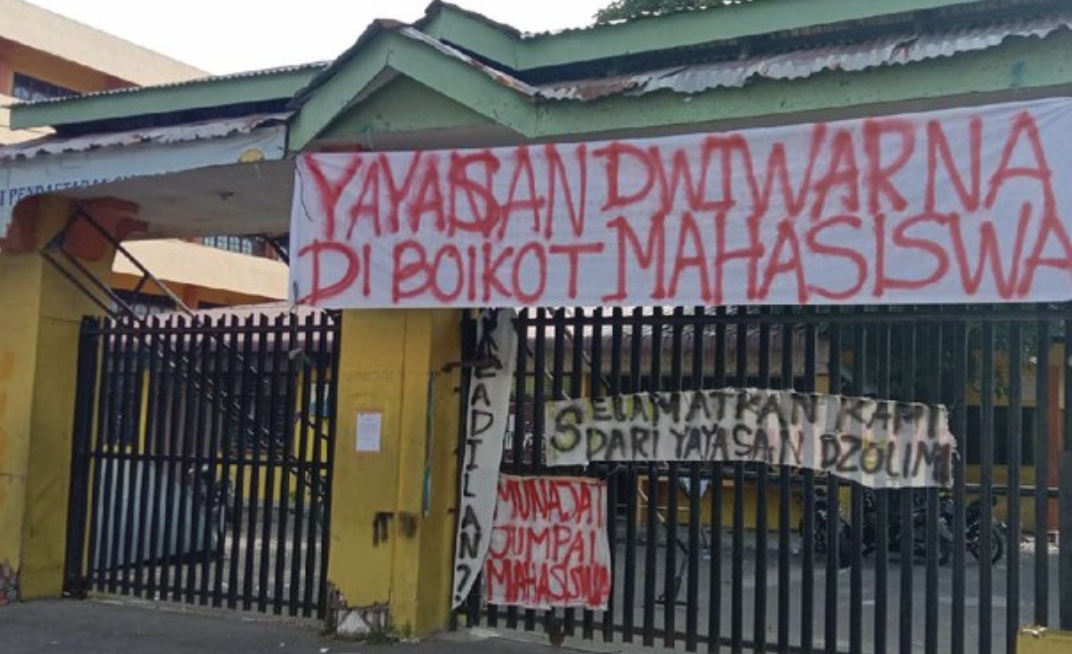 YAYASAN DWIWARNA
DI BOIKOT MAHASISWA
KEADILAN?
SELAMATKAN KAMI
DARI YAYASAN DZOLIM
MUNAJAT
JUMPAI
MAHASISWA